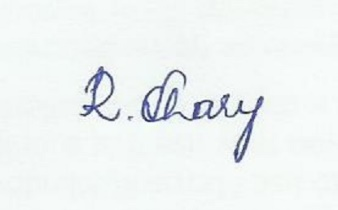 R. Chary